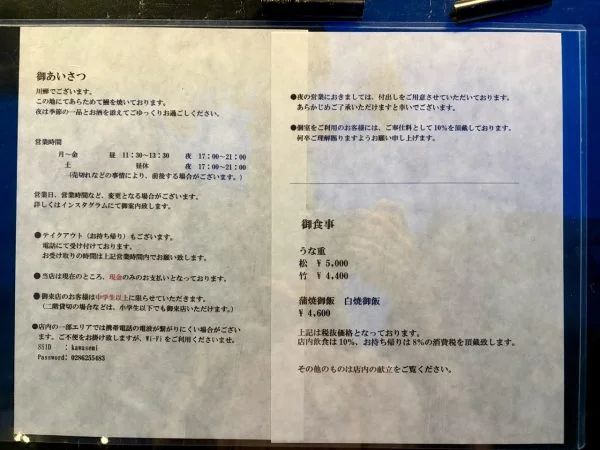 御あいさつ
川蟬でございます。
この地にてあらためて鰻を焼いております。
夜は季節の一品とお酒を添えてごゆっくりお過ごしください。
営業時間
月～金 昼 11:30～13:30 夜 17:00～21:00
土 昼休 夜 17:00～21:00
（売切れなどの事情により、前後する場合がございます。）
営業日、営業時間など、変更となる場合がございます。
詳しくはインスタグラムにて御案内致します。
●テイクアウト（お持ち帰り）もございます。
電話にて受け付けております。
お受け取りの時間は上記営業時間内でお願い致します。
●当店は現在のところ、現金のみのお支払いとなっております。
●御来店のお客様は中学生以上に限らせていただきます。
（二階貸切の場合などは、小学生以下でも御来店いただけます。）
●店内の一部エリアでは携帯電話の電波が繋がりにくい場合がござい
ます。ご不便をお掛け致しますが、Wi-Fiをご利用くださいませ。
SSID : kawasemi
Password: 0286255483
●夜の営業におきましては、付出しをご用意させていただいております。
あらかじめご了承いただけますと幸いでございます。
●個室をご利用のお客様には、ご奉仕料として10%を頂戴しております。
何卒ご理解賜りますようお願い申し上げます。
御食事
うな重
松 ¥ 5,000
竹 ¥ 4,400
蒲焼御飯 白焼御飯
¥ 4,600
上記は税抜価格となっております。
店内飲食は10%、お持ち帰りは8%の消費税を頂戴致します。
その他のものは店内の献立をご覧ください。